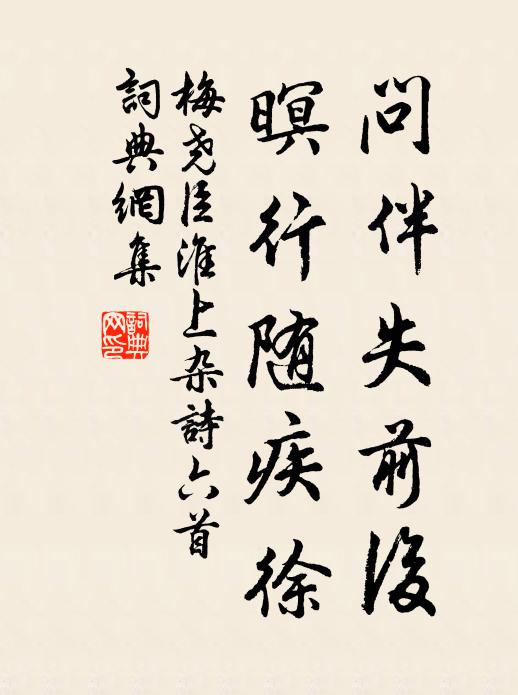 問伴失前後
瞑行随疾徐
梅尧臣淮上杂詩六首
詞典網集
詞典网印